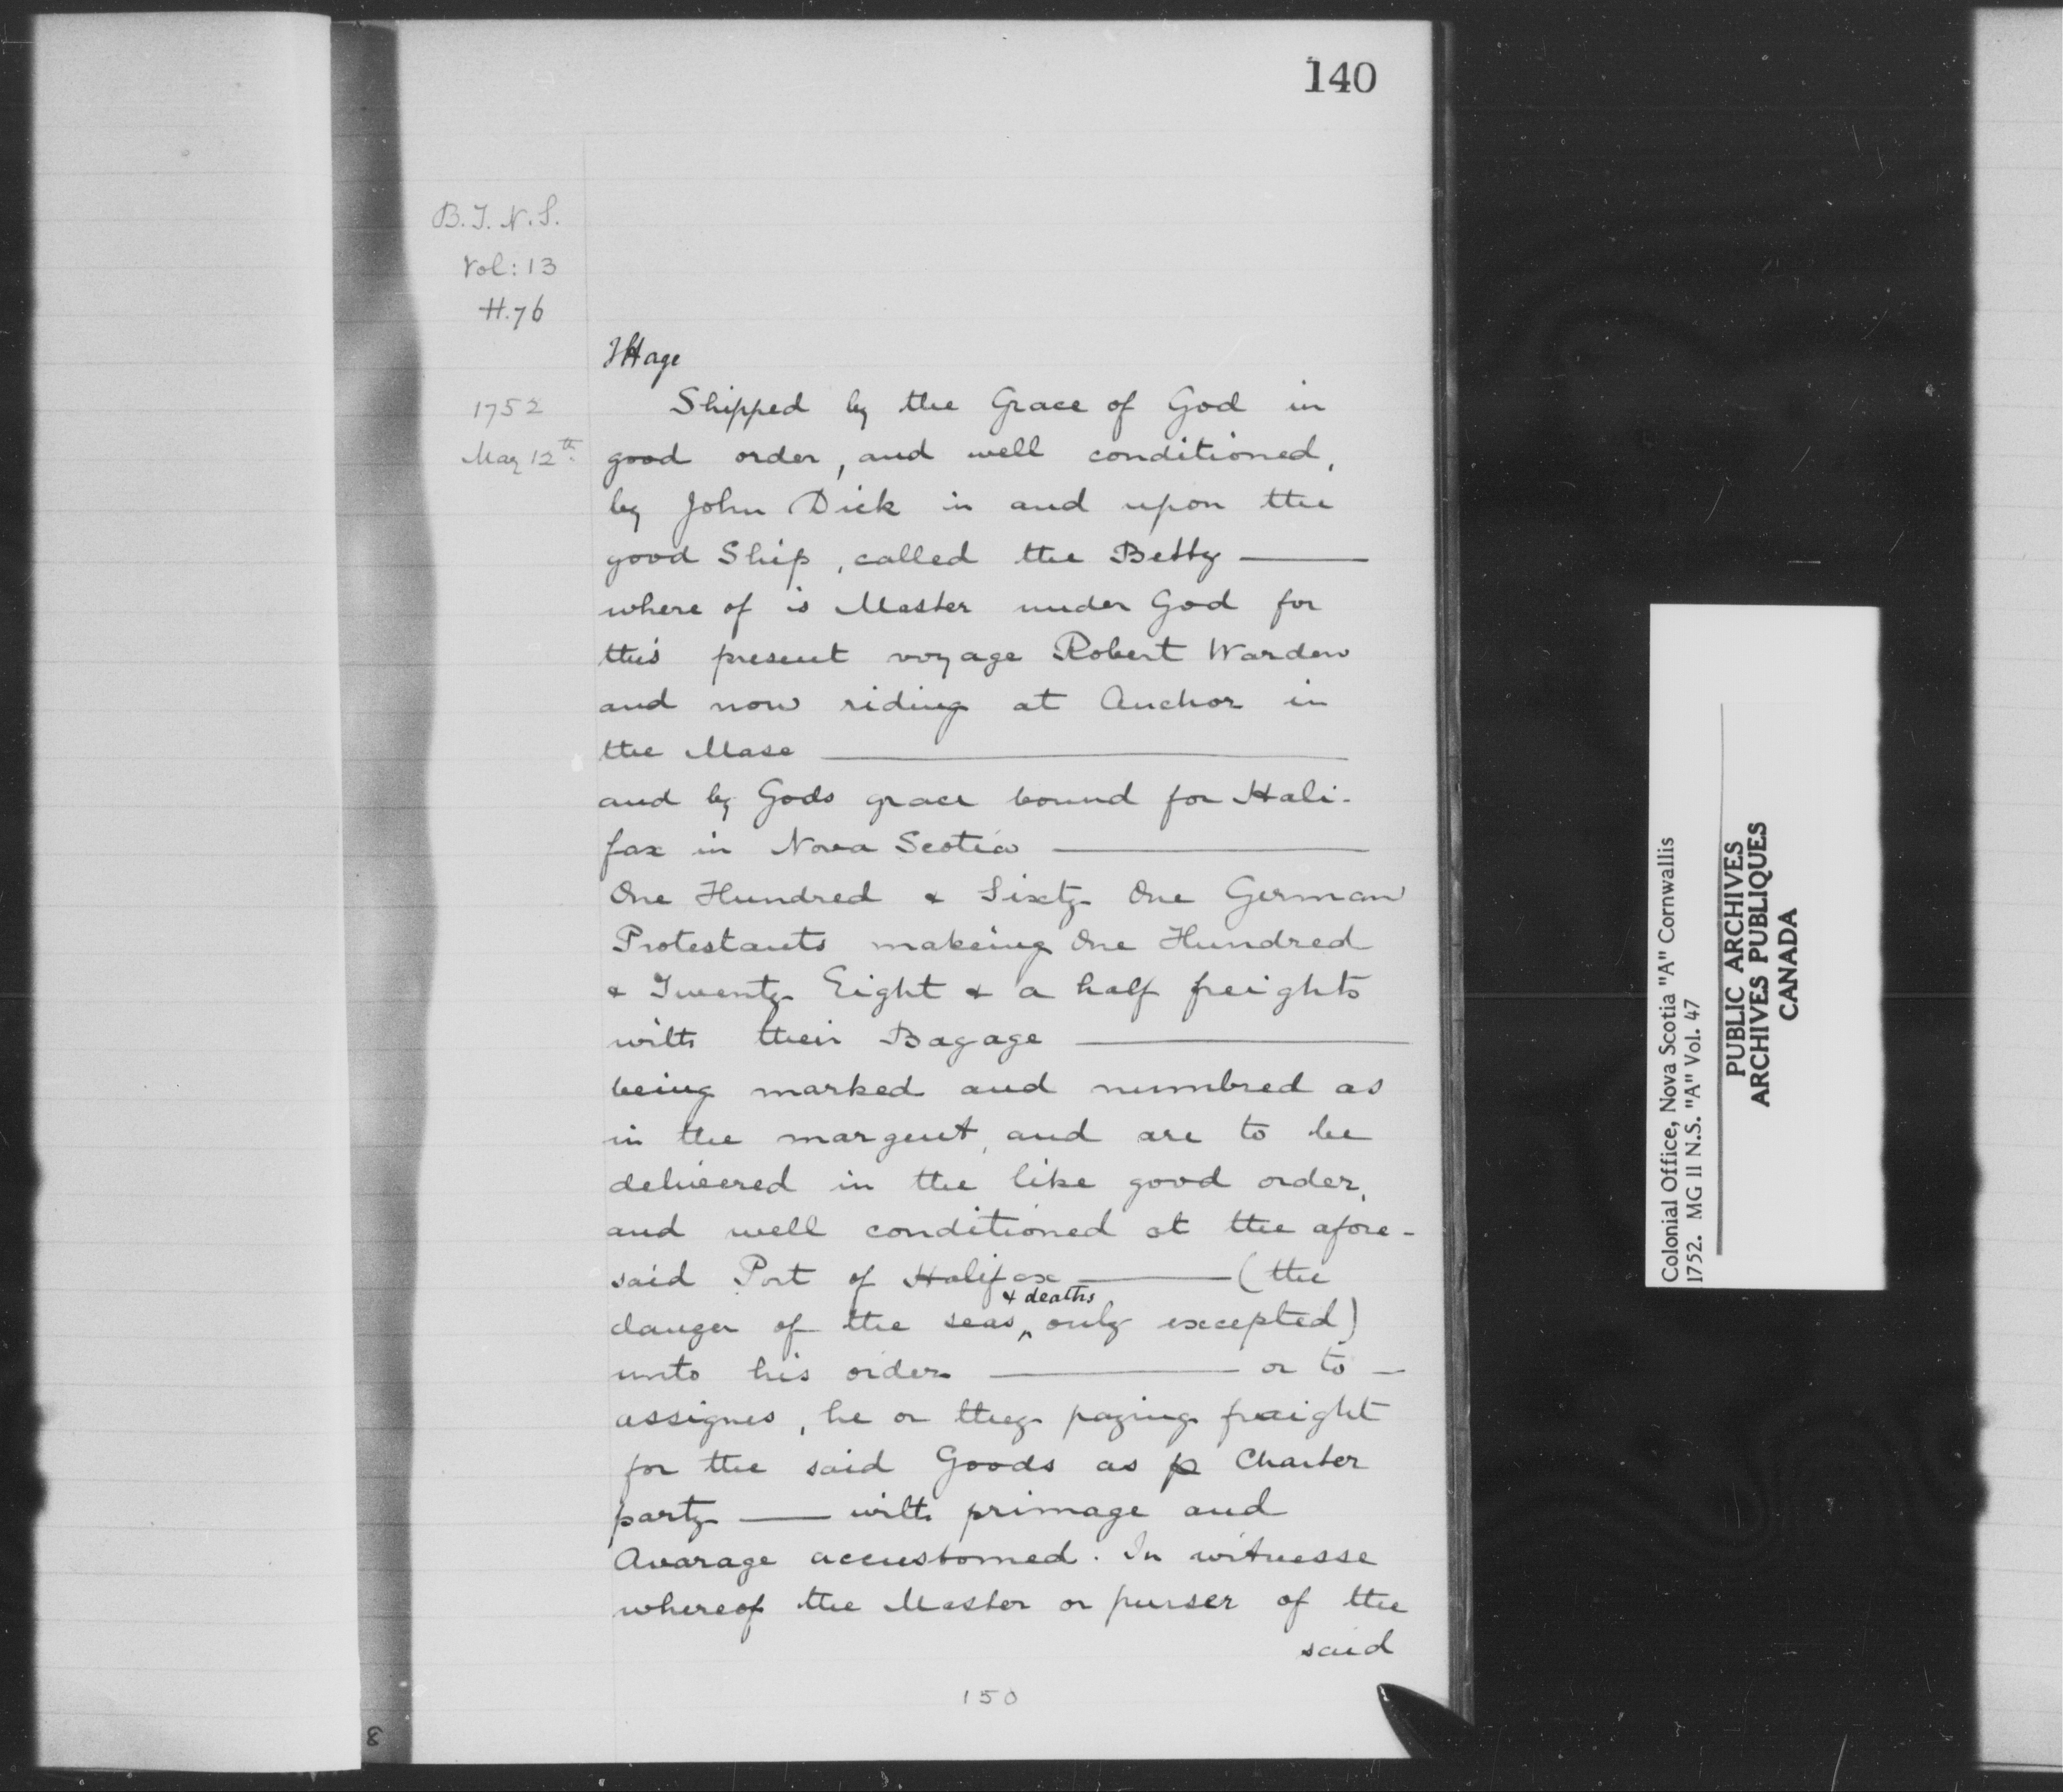 140
B.T.N.S.
Vol: 13
H. 76
1752
May 12th
Shipped by the Grace of God in
good order, and well conditioned,
by John Dick in and upon the
good Ship, called the Betty ———
where of is Master under God for
this present voyage Robert Warden
and now riding at Anchor in
the Mase ———
and by Gods grace bound for Hali-
fax in Nova Scotia ———
One Hundred & Sixty One German
Protestants makeing One Hundred
& Twenty Eight & a half freights
with their Bagage ———
being marked and numbred as
in the margent, and are to be
delivered in the like good order,
and well conditioned at the afore-
said Port of Halifax ——— (the
danger of the seas & deaths only excepted)
unto his order ——— or to —
assignes, he or they paying fraight
for the said Goods as p Charter
party —— with primage and
Avarage accustomed. In witnesse
whereof the Master or purser of the
said
150
8
Colonial Office, Nova Scotia "A" Cornwallis
1752. MG 11 N.S. "A" Vol. 47
PUBLIC ARCHIVES
ARCHIVES PUBLIQUES
CANADA